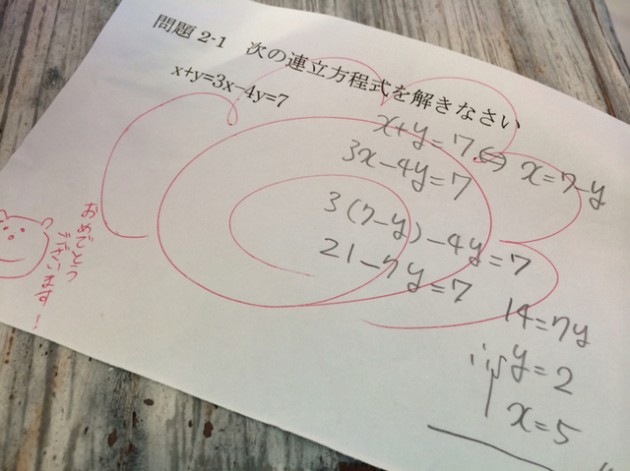 問題 2-1 次の連立方程式を解きなさい
x+y=3x−4y=7
x+y=7 ⇔ x=7-y
3x-4y=7
3(7-y)-4y=7
21-7y=7
14=7y
y=2
x=5
おめでとう
ございます!